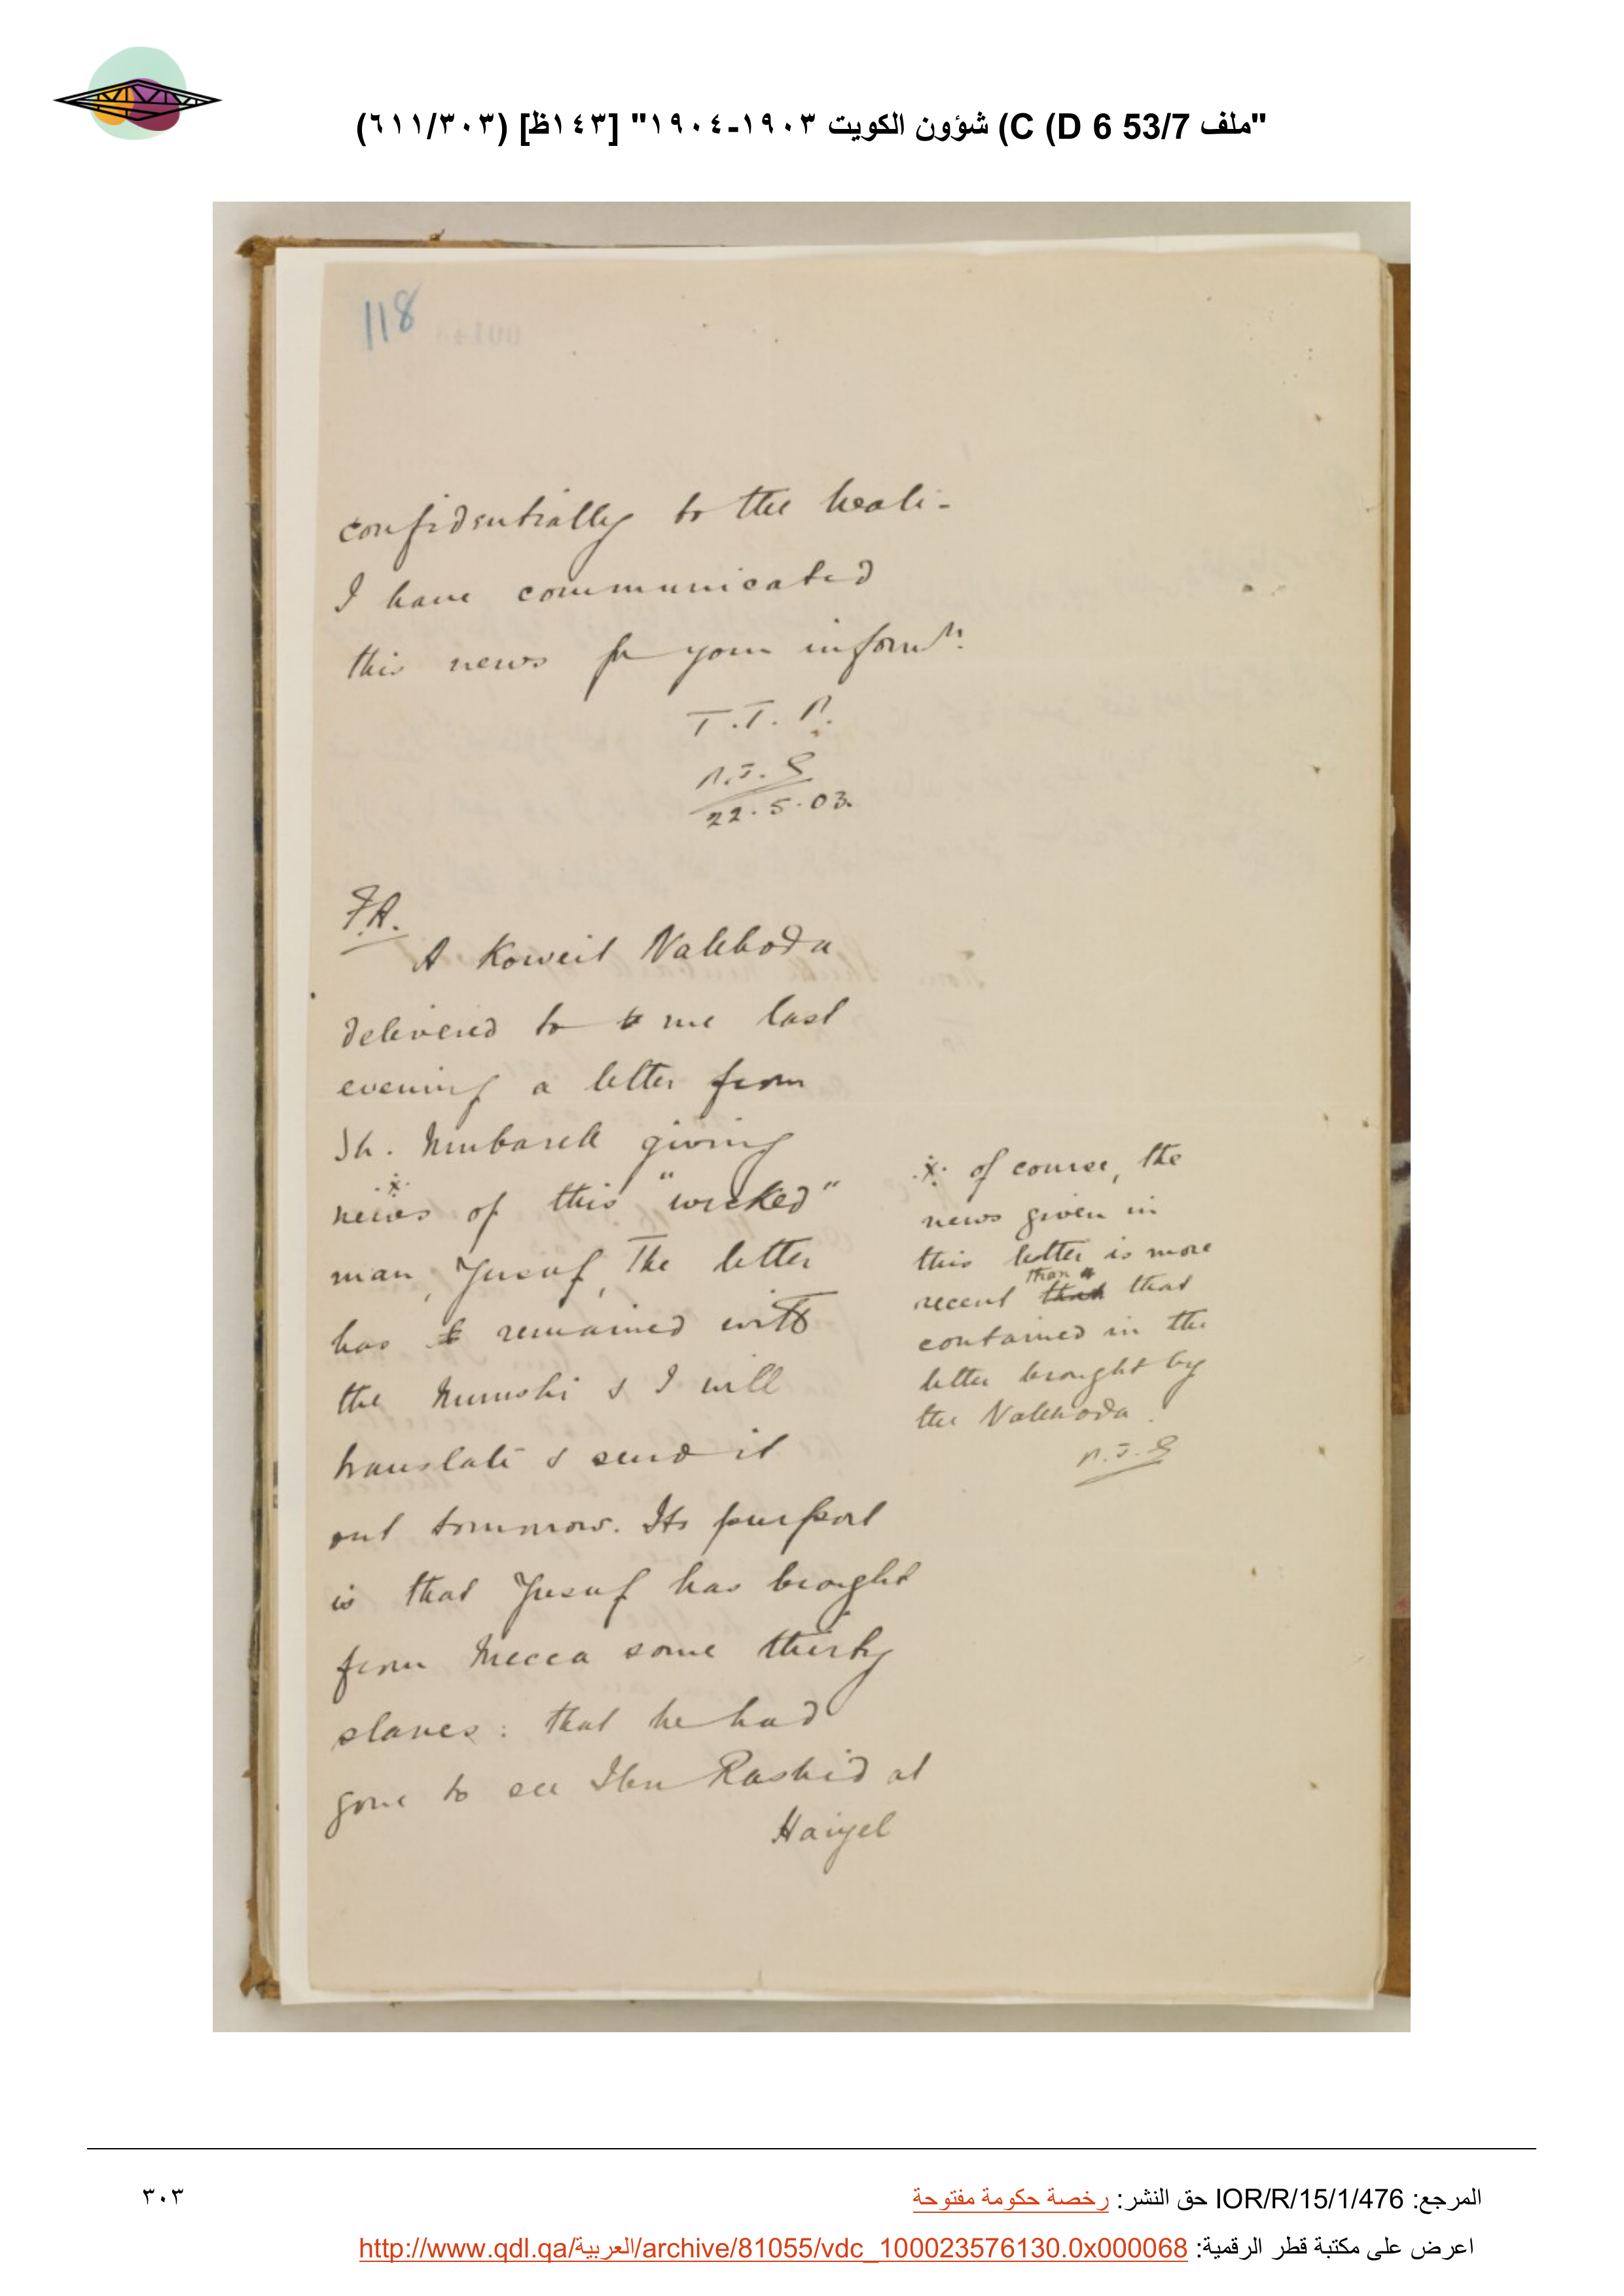 "ملف 53/7 C (D 6) شؤون الكويت ١٩٠٣-١٩٠٤" [١٤٣ظ] (٦١١/٣٠٣)
118
confidentially to the Wali -
I have communicated
this news for your informn.
T.T.
22.5.03.
F.A.
A Koweit Nakhoda
delivered to me last
evening a letter from
Sh. Mubarak giving
news of this "wicked"
man, Yusuf, The letter
has remained with
the Munshi & I will
translate & send it
out tomorrow. Its purport
is that Yusuf has brought
from Mecca some thirty
slaves: that he had
gone to see Ibn Rashid at
Haiyel
of course, the
news given in
this letter is more
recent than that
contained in the
letter brought by
the Nakhoda.
المرجع: IOR/R/15/1/476 حق النشر: رخصة حكومة مفتوحة
٣٠٣
اعرض على مكتبة قطر الرقمية: http://www.qdl.qa/العربية/archive/81055/vdc_100023576130.0x000068